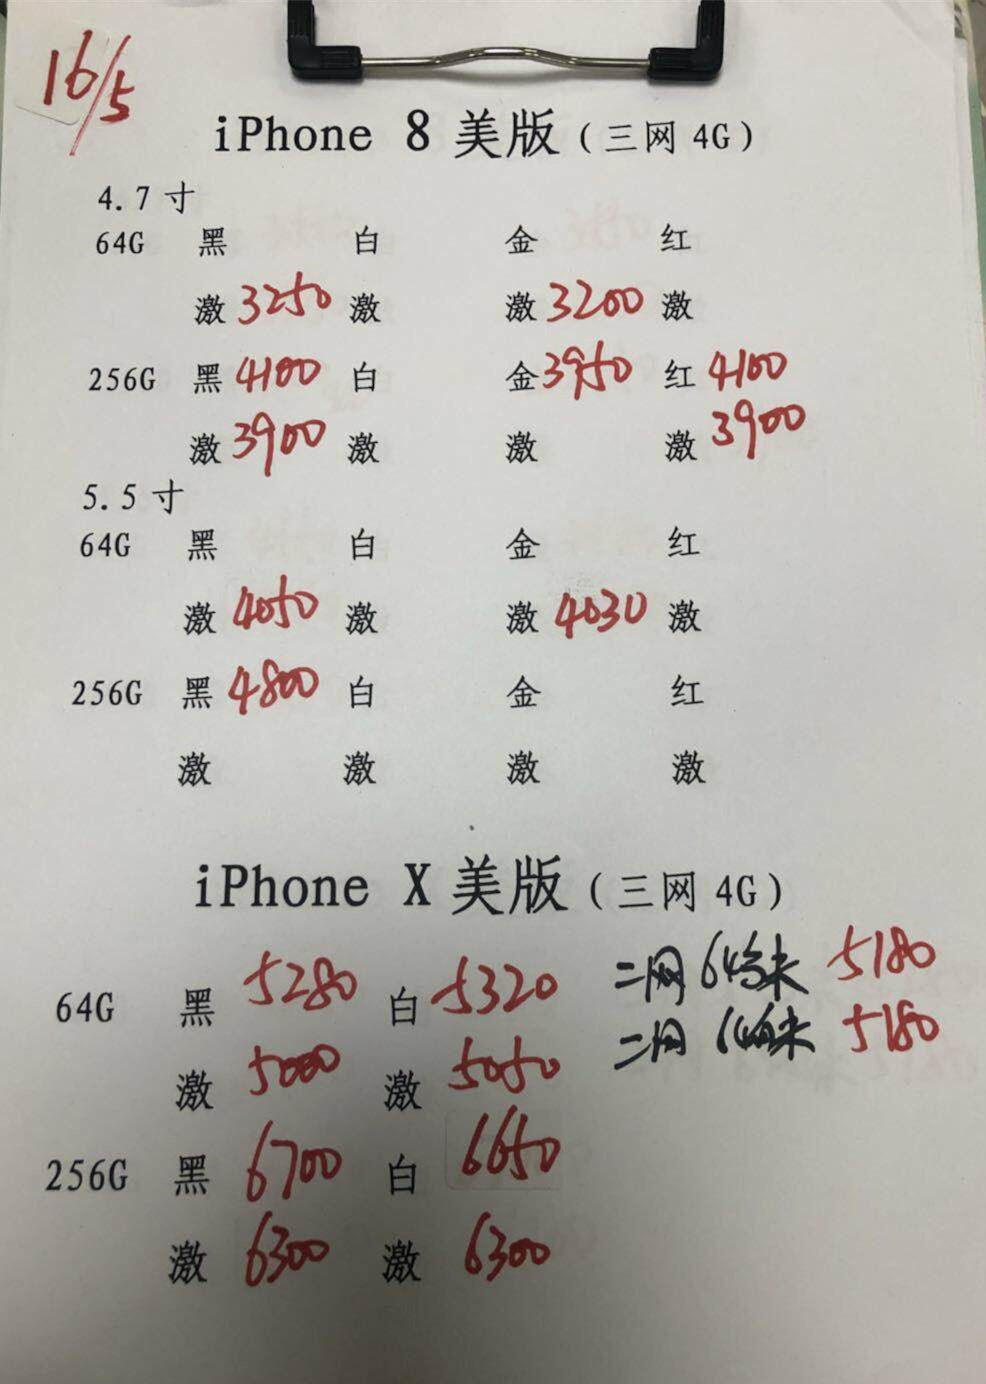 16/5
iPhone 8 美版（三网 4G）
4.7 寸
64G 黑 白 金 红
激 3250 激 激 3200 激
256G 黑 4100 白 金 3950 红 4100
激 3900 激 激 激 3900
5.5 寸
64G 黑 白 金 红
激 4050 激 激 4030 激
256G 黑 4800 白 金 红
激 激 激 激
iPhone X 美版（三网 4G）
64G 黑 5280 白 5320 二网 64 未 5180
激 5000 激 5050 二网 64 未 5180
256G 黑 6700 白 6650
激 6300 激 6300